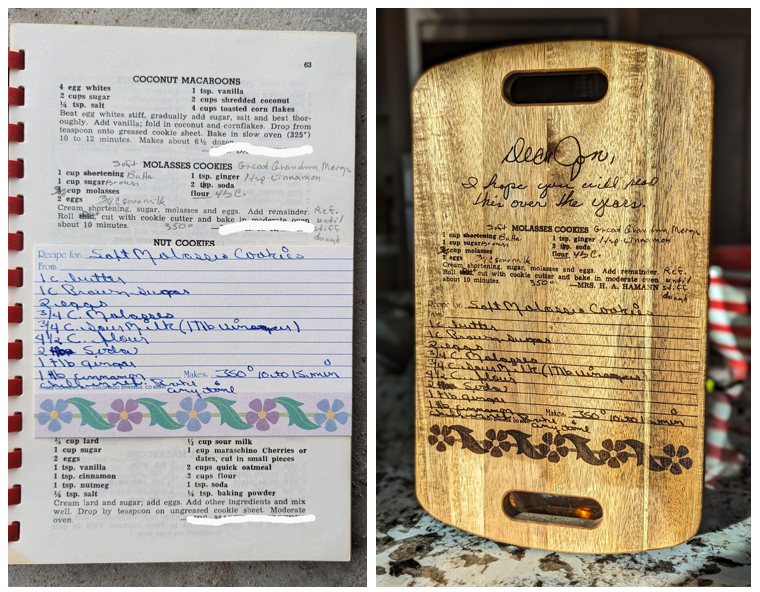 63
COCONUT MACAROONS
4 egg whites 1 tsp. vanilla
2 cups sugar 2 cups shredded coconut
¼ tsp. salt 4 cups toasted corn flakes
Beat egg whites stiff, gradually add sugar, salt and beat thor-
oughly. Add vanilla; fold in coconut and cornflakes. Drop from
teaspoon onto greased cookie sheet. Bake in slow oven (325°)
10 to 12 minutes. Makes about 6½ dozen
Soft
MOLASSES COOKIES Great Grandma
1 cup shortening Butta 1 tsp. ginger 1 tsp. Cinnamon
1 cup sugar Brown 2 tsp. soda
cup molasses flour 4½ C.
2 eggs ¾ C sour milk
Cream shortening, sugar, molasses and eggs. Add remainder. Ref.
Roll cut with cookie cutter and bake in moderate oven until
about 10 minutes. 350° stiff
dough
NUT COOKIES
Recipe for: Soft Molasses Cookies
From:
1 c butter
1 C Brown Sugar
2 eggs
3/4 C. Molasses
3/4 C. Sour Milk (1 Tlb Vinegar)
4 1/2 C. flour
2 Soda
1 Tlb ginger
1 Tlb cinnamon Makes: 350° 10 to 15 min
¾ cup lard ½ cup sour milk
1 cup sugar 1 cup maraschino Cherries or
2 eggs dates, cut in small pieces
1 tsp. vanilla 2 cups quick oatmeal
1 tsp. cinnamon 2 cups flour
1 tsp. nutmeg 1 tsp. soda
¼ tsp. salt ¼ tsp. baking powder
Cream lard and sugar; add eggs. Add other ingredients and mix
well. Drop by teaspoon on ungreased cookie sheet. Moderate
oven.
Dear Jon,
I hope you will read
this over the years.
Soft
MOLASSES COOKIES Great Grandma
1 cup shortening Butta 1 tsp. ginger 1 tsp. Cinnamon
1 cup sugar Brown 2 tsp. soda
cup molasses flour 4½ C.
2 eggs ¾ C sour milk
Cream shortening, sugar, molasses and eggs. Add remainder. Ref.
Roll cut with cookie cutter and bake in moderate oven until
about 10 minutes. 350° —MRS. H. A. HAMANN stiff
dough
Recipe for: Soft Molasses Cookies
From:
1 c butter
1 C Brown Sugar
2 eggs
3/4 C. Molasses
3/4 C. Sour Milk (1 Tlb Vinegar)
4 1/2 C. flour
2 Soda
1 Tlb ginger
1 Tlb cinnamon Makes: 350° 10 to 15 min